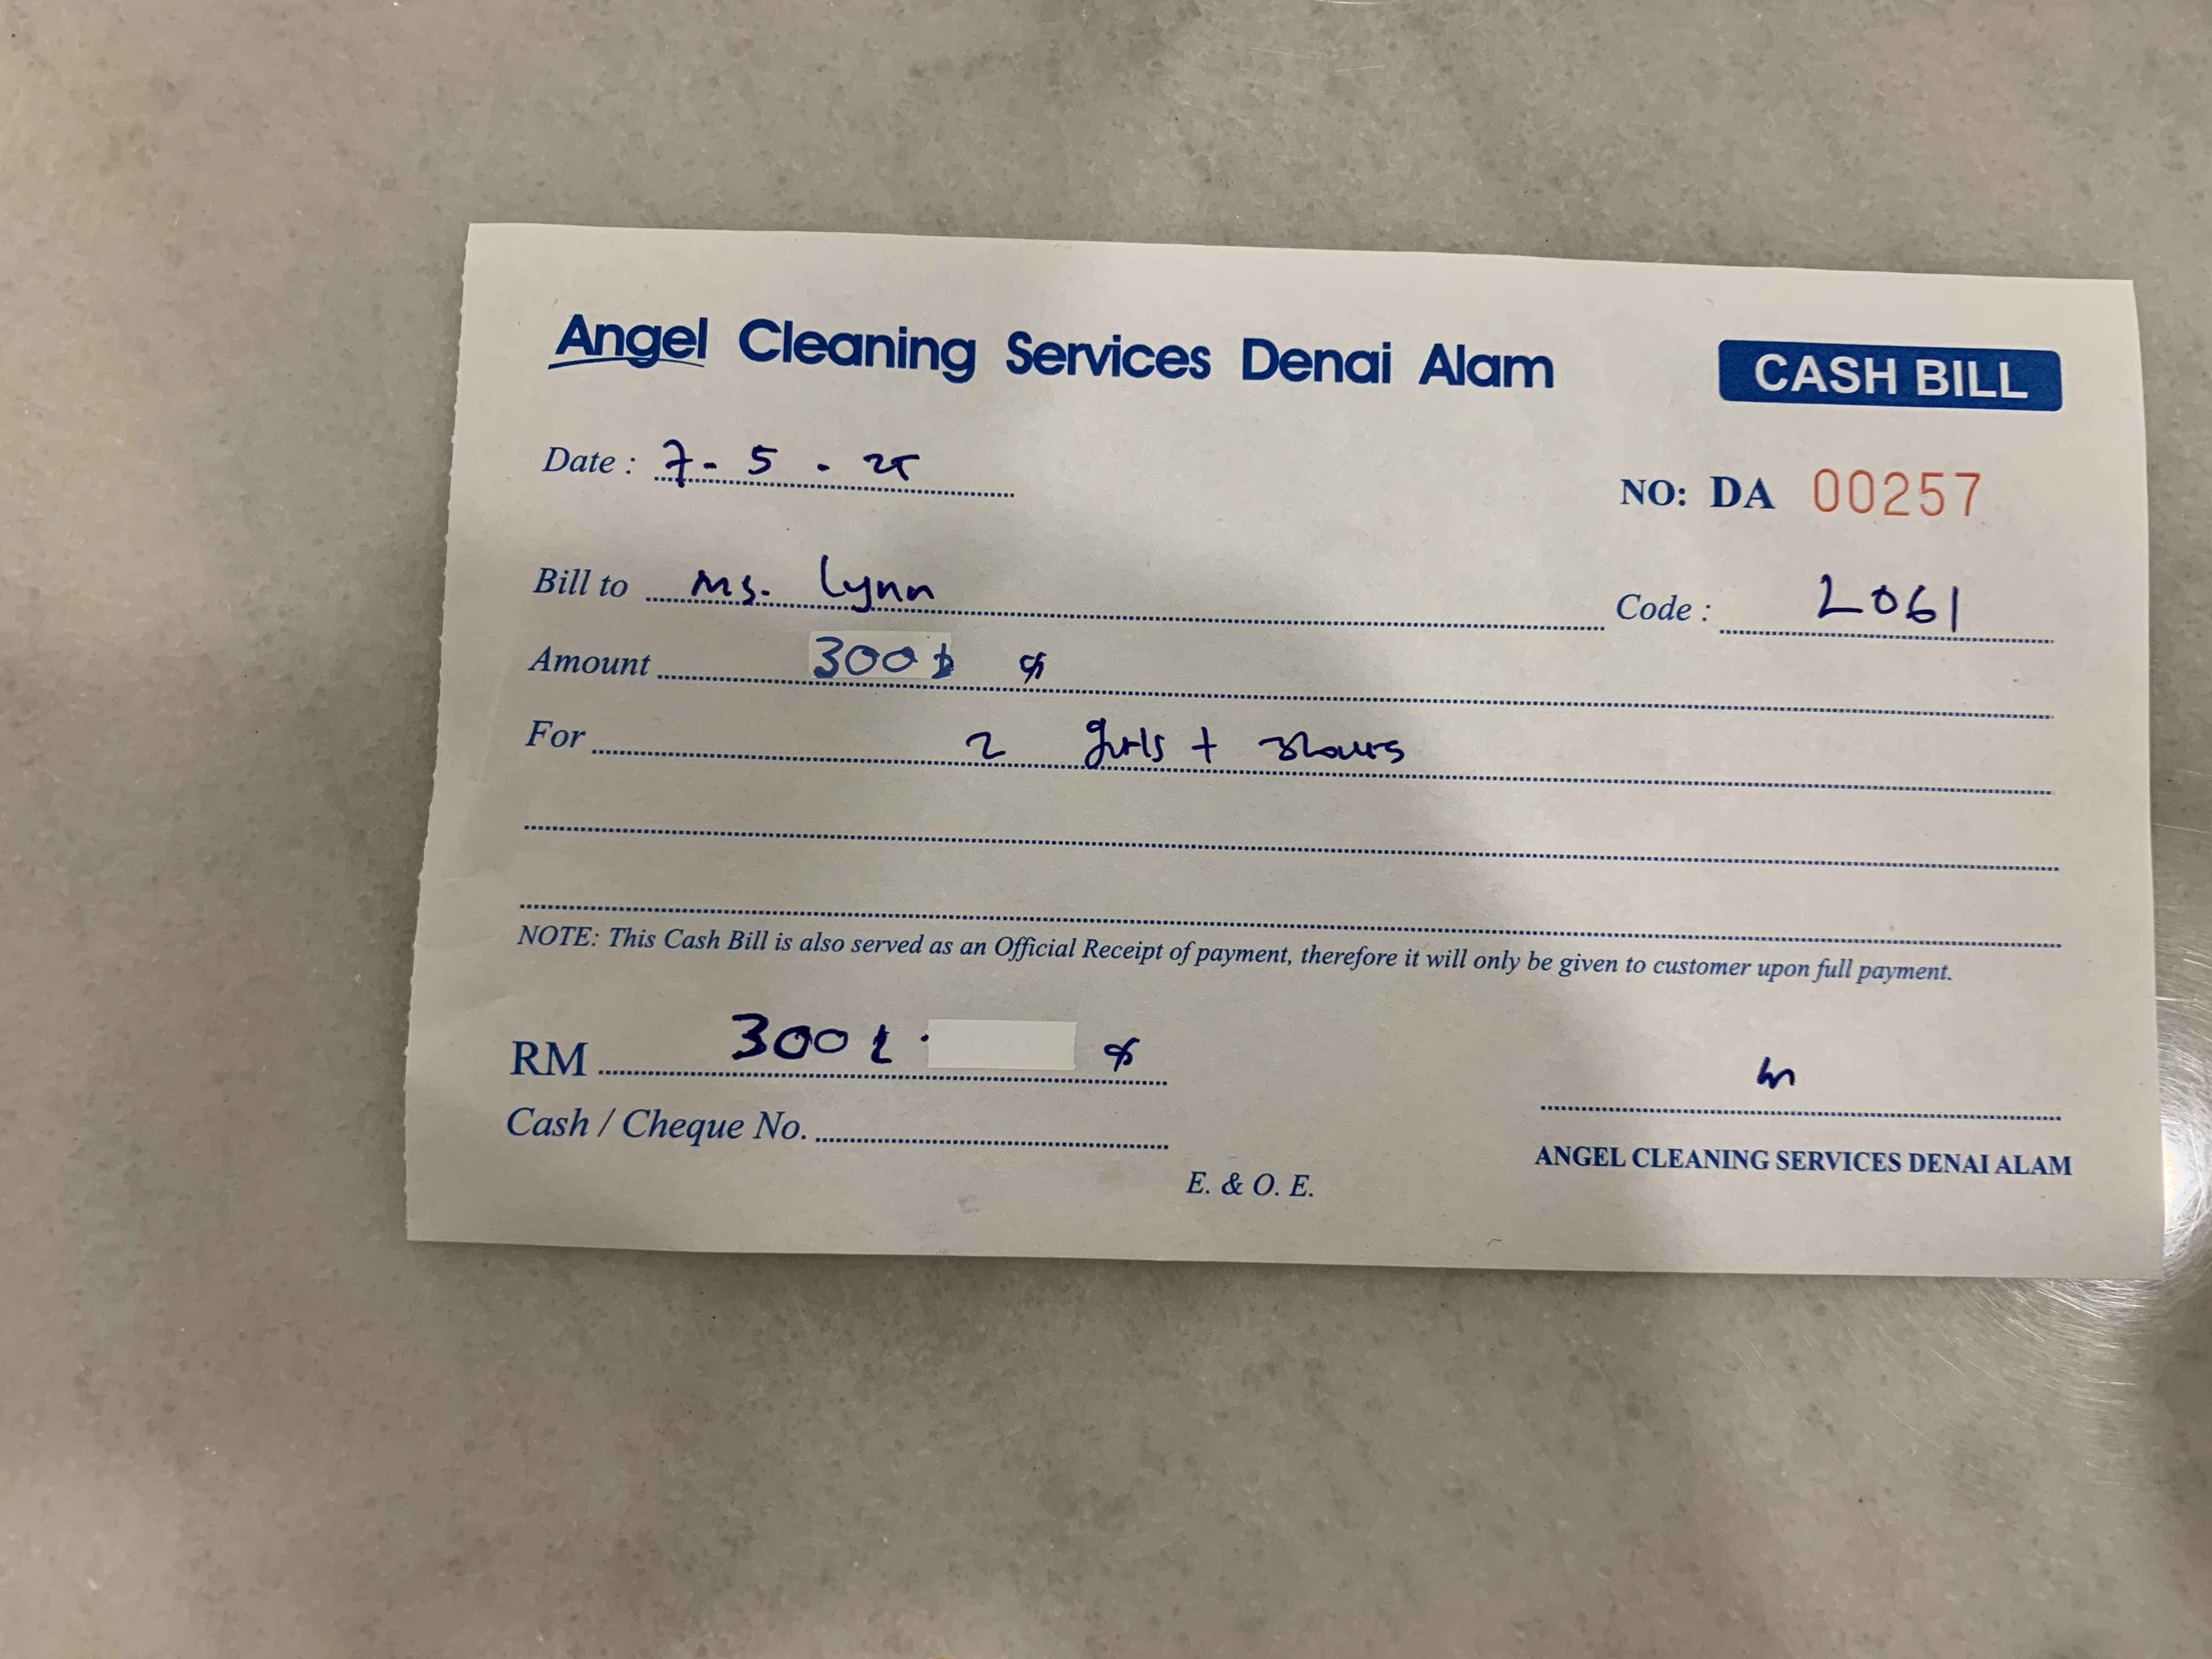 Angel Cleaning Services Denai Alam
CASH BILL
Date : 7 - 5 - 25
NO: DA 00257
Bill to Ms. Lynn
Code : 2061
Amount 300
For 2 girls + hours
NOTE: This Cash Bill is also served as an Official Receipt of payment, therefore it will only be given to customer upon full payment.
RM 300
Cash / Cheque No.
E. & O. E.
ANGEL CLEANING SERVICES DENAI ALAM